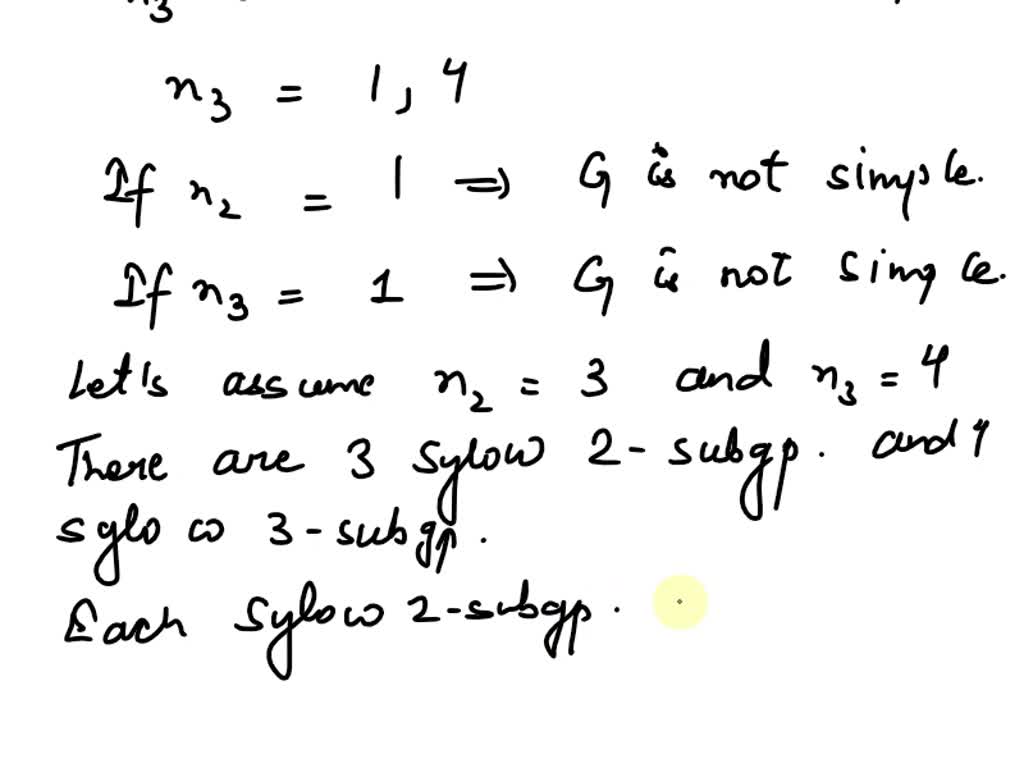 n₃
n₃ = 1, 4
If n₂ = 1 ⇒ G is not simple.
If n₃ = 1 ⇒ G is not simple.
Let's assume n₂ = 3 and n₃ = 4
There are 3 Sylow 2-subgp. and 4
sylow 3-subgp.
Each Sylow 2-subgp.